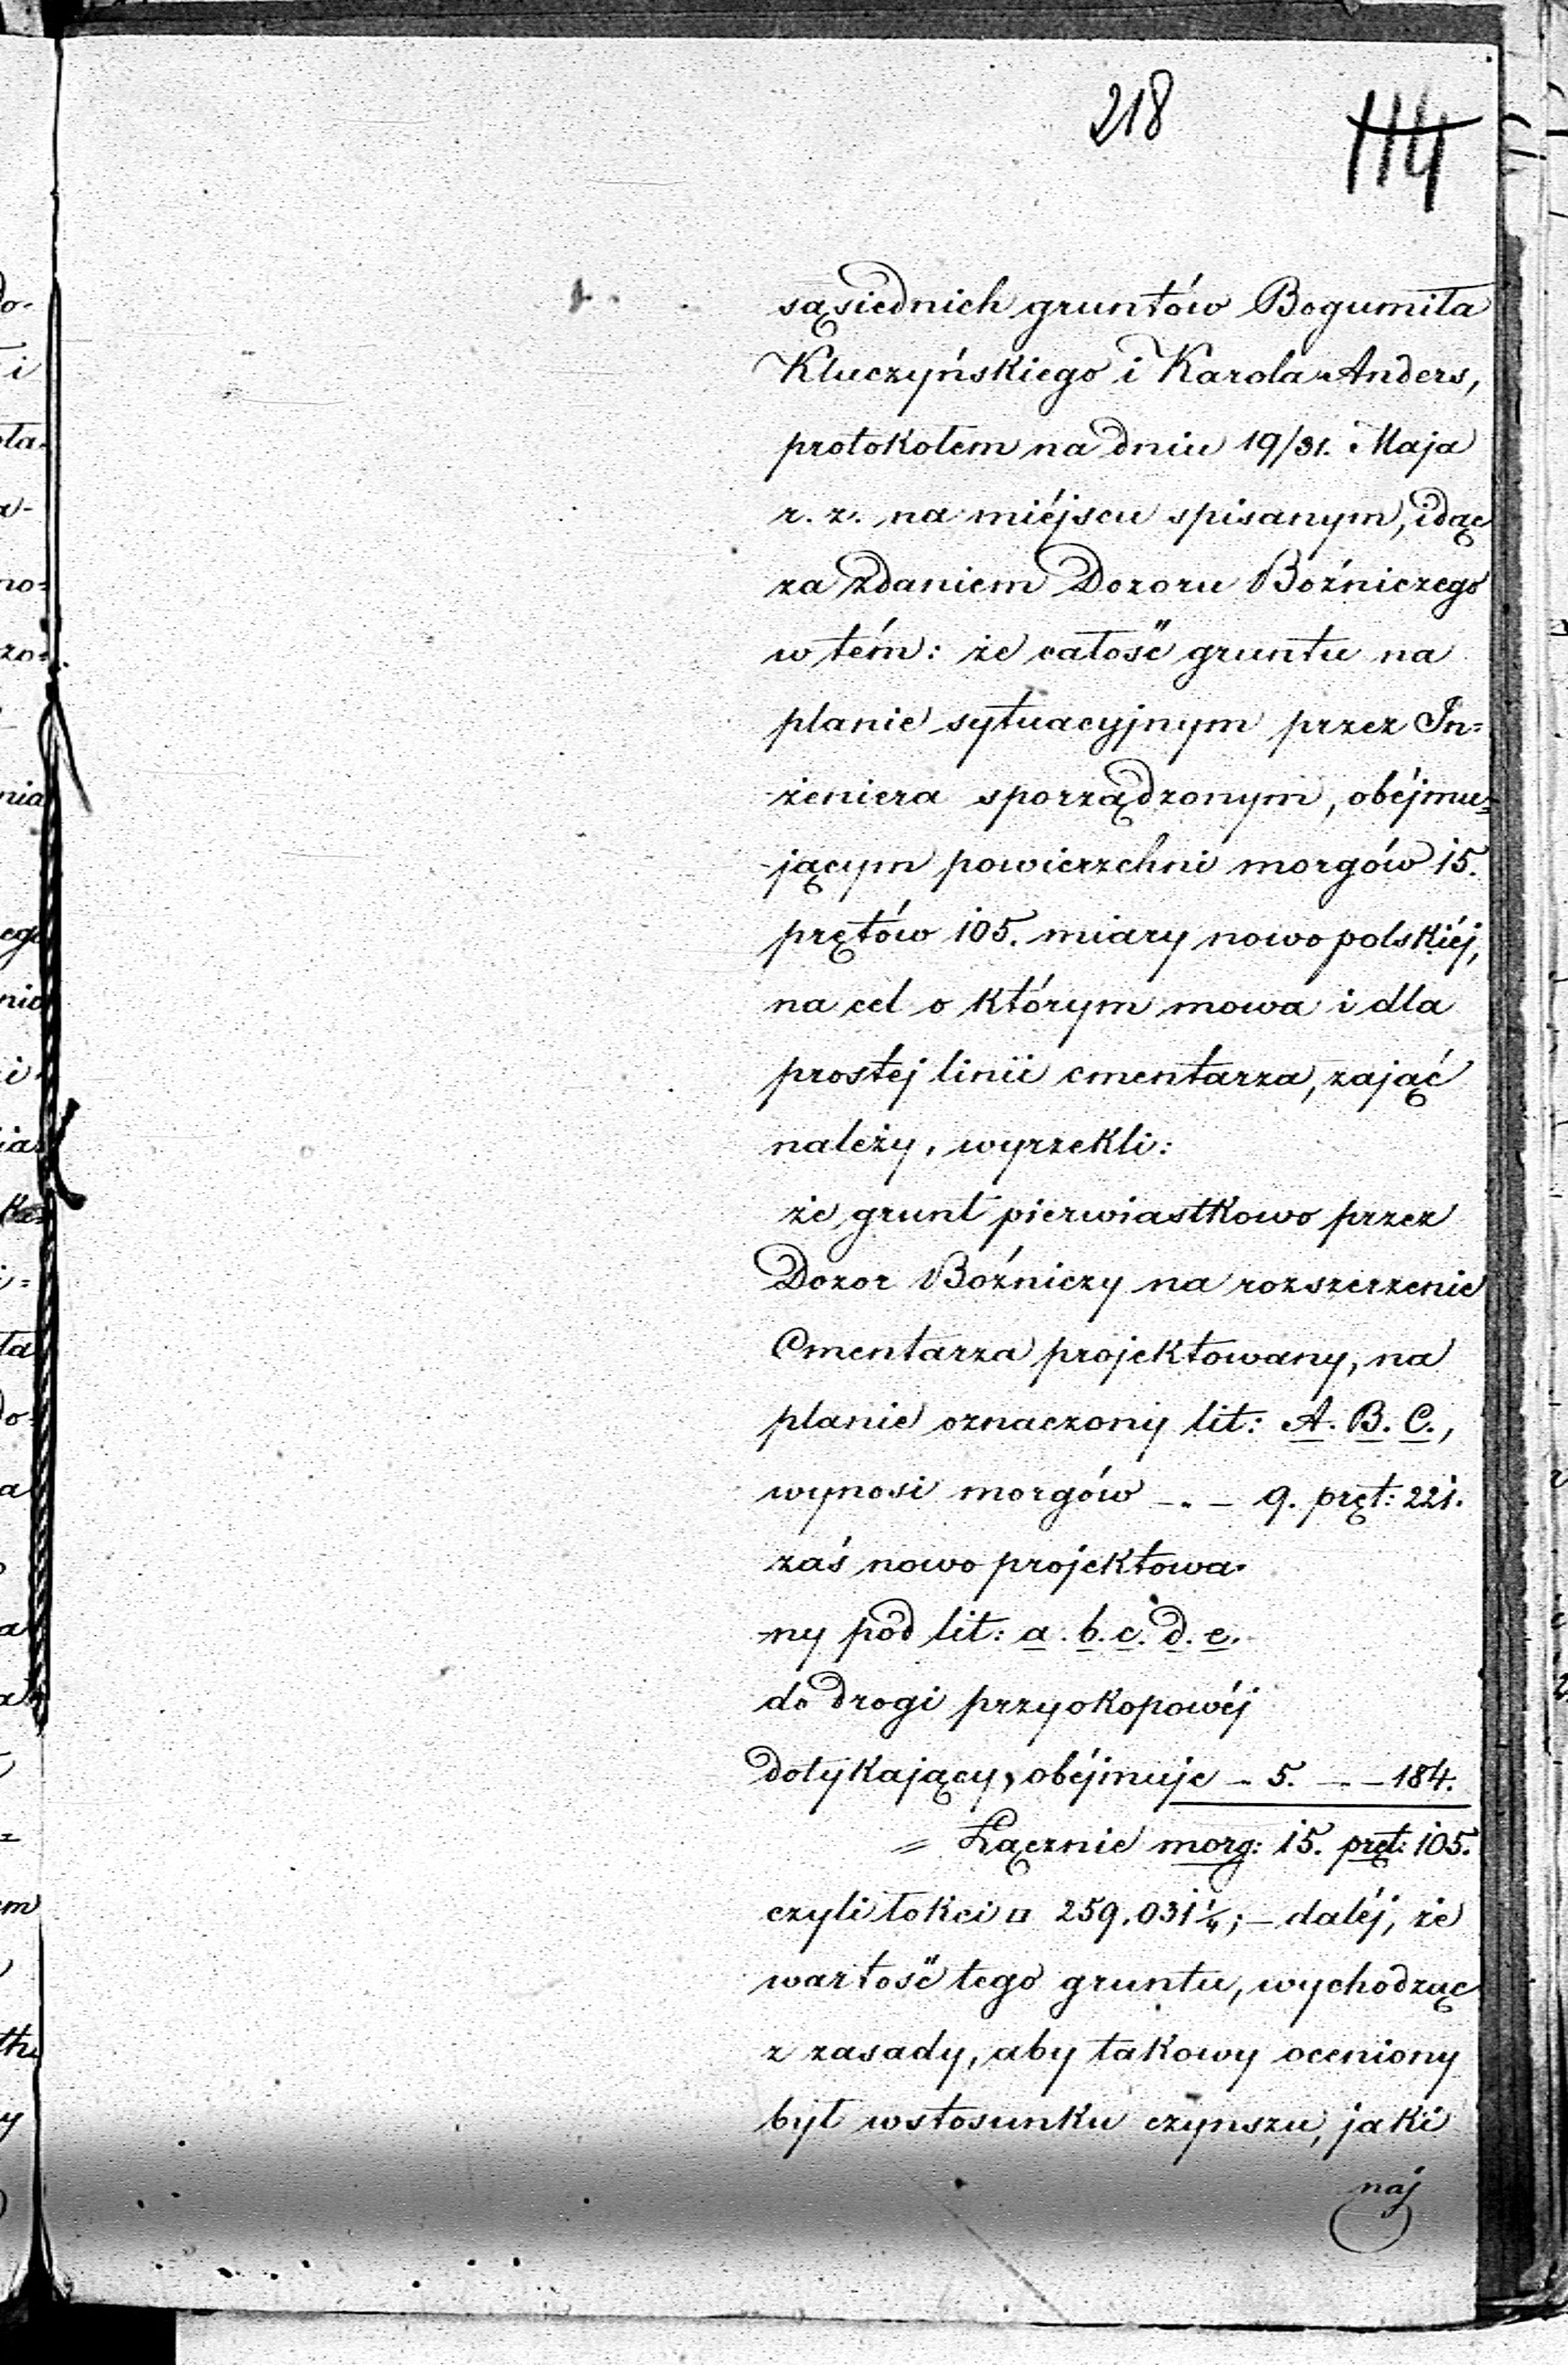 218
114
sąsiednich gruntów Bogumiła
Kluczyńskiego i Karola Anders,
protokołem na dniu 19/31. Maja
r. z. na miéjscu spisanym, idąc
za zdaniem Dozoru Bożniczego
w tém: że całość gruntu na
planie sytuacyjnym przez In=
żeniera sporządzonym, obéjmu=
-jącym powierzchni morgów 15.
prętów 105. miary nowopolskiéj,
na cel o którym mowa i dla
prostej linii cmentarza, zająć
należy, wyrzekli:
że grunt pierwiastkowo przez
Dozor Bożniczy na rozszerzenie
Cmentarza projektowany, na
planie oznaczony lit: A. B. C.,
wynosi morgów -.- 9. pręt: 221.
zaś nowo projektowa-
-ny pod lit: a. b. c. d. e.
do drogi przyokopowéj
dotykający, obéjmuje - 5. -.- 184.
= Łącznie morg: 15. pręt: 105.
czyli łokci □ 259.031¼; - daléj, że
wartość tego gruntu, wychodząc
z zasady, aby takowy oceniony
był w stosunku czynszu, jaki
naj